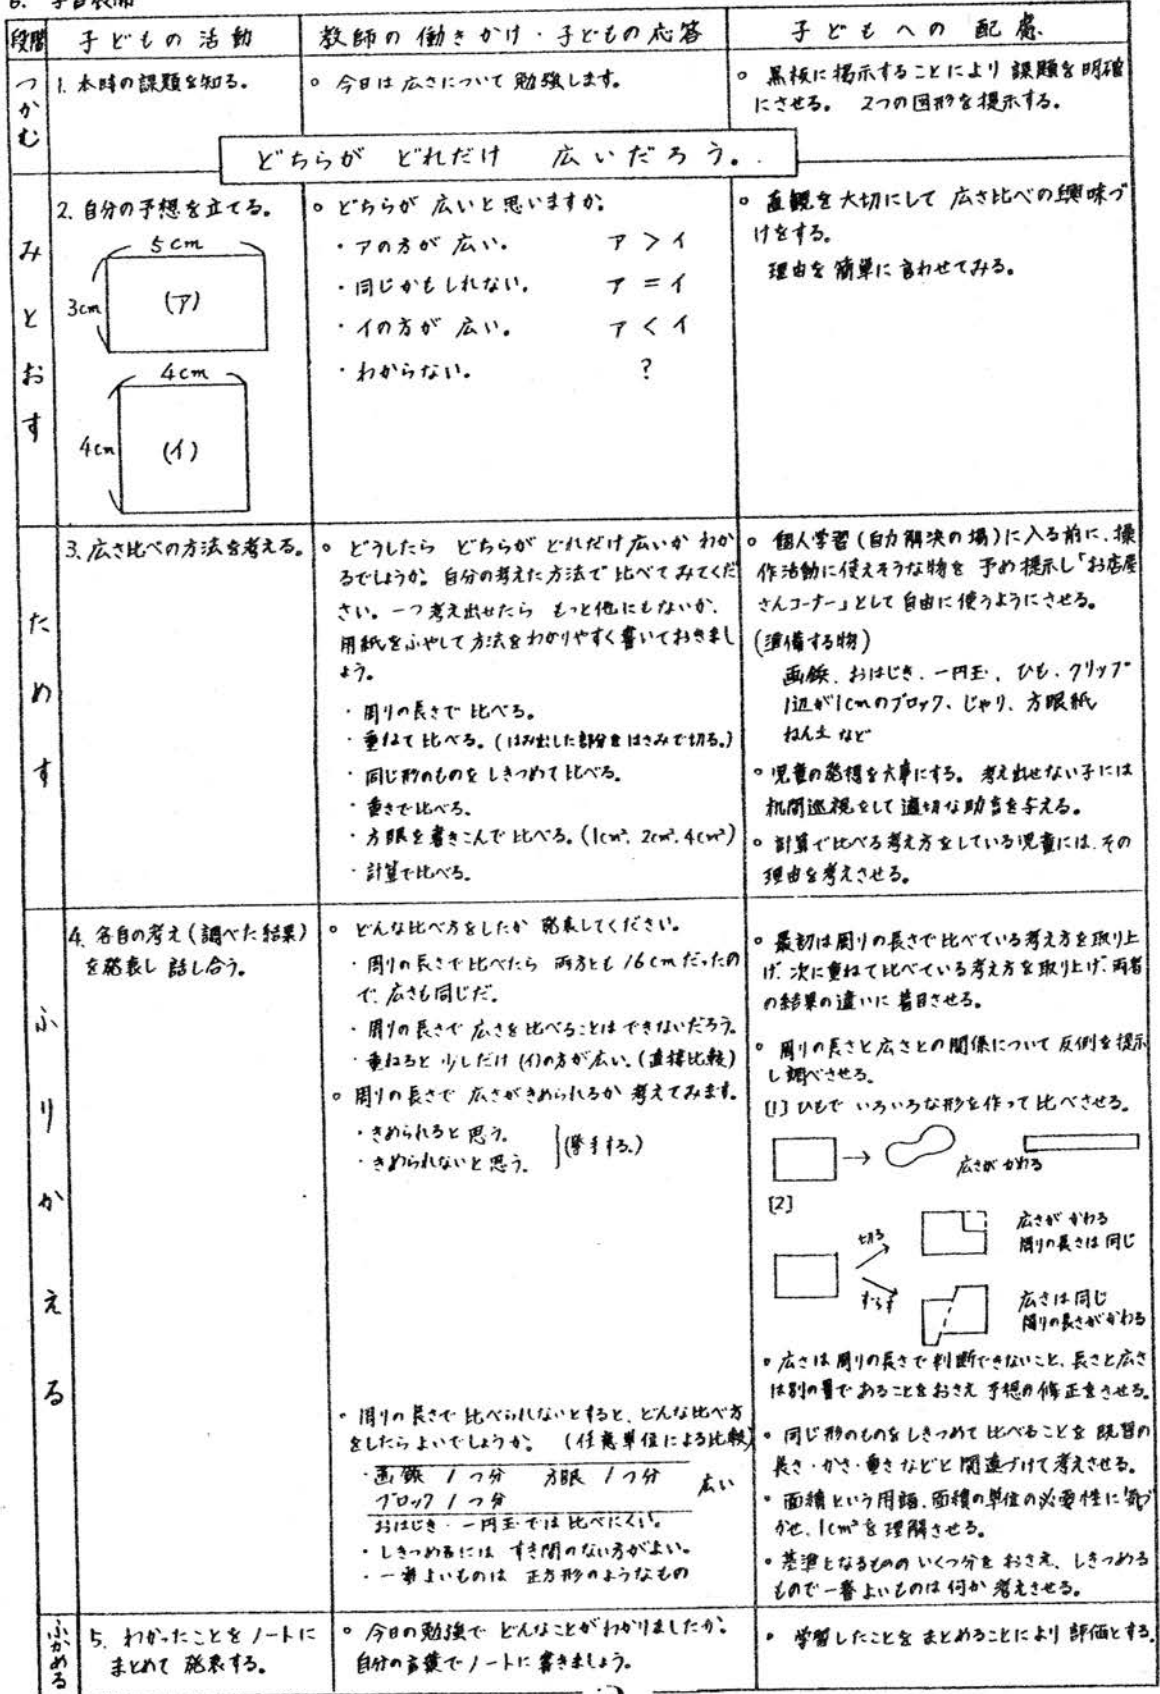 6. 学習展開
段階
子どもの活動
教師の働きかけ・子どもの応答
子どもへの配慮
つかむ
1. 本時の課題を知る。
○ 今日は広さについて勉強します。
○ 黒板に掲示することにより課題を明確
にさせる。 2つの図形を提示する。
どちらが どれだけ 広いだろう。
みとおす
2. 自分の予想を立てる。
5cm
3cm
(ア)
4cm
4cm
(イ)
○ どちらが広いと思いますか。
・アの方が広い。 ア > イ
・同じかもしれない。 ア = イ
・イの方が広い。 ア < イ
・わからない。 ?
○ 直観を大切にして広さ比べの興味づ
けをする。
理由を簡単に言わせてみる。
ためす
3. 広さ比べの方法を考える。
○ どうしたら どちらが どれだけ広いか わか
るでしょうか。自分の考えた方法で比べてみてくだ
さい。一つ考え出せたら もっと他にもないか、
用紙をふやして方法をわかりやすく書いておきまし
ょう。
・周りの長さで比べる。
・重ねて比べる。(はみ出した部分をはさみで切る。)
・同じ形のものをしきつめて比べる。
・重さで比べる。
・方眼を書きこんで比べる。(1cm², 2cm², 4cm²)
・計算で比べる。
○ 個人学習(自力解決の場)に入る前に、操
作活動に使えそうな物を 予め提示し「お店屋
さんコーナー」として自由に使うようにさせる。
(準備する物)
画鋲、おはじき、一円玉、ひも、クリップ
1辺が1cmのブロック、じゃり、方眼紙
ねん土 など
○ 児童の発想を大事にする。考え出せない子には
机間巡視をして適切な助言を与える。
○ 計算で比べる考え方をしている児童には、その
理由を考えさせる。
ふりかえる
4. 各自の考え(調べた結果)
を発表し話し合う。
○ どんな比べ方をしたか発表してください。
・周りの長さで比べたら 両方とも16cmだったの
で、広さも同じだ。
・周りの長さで広さを比べることはできないだろう。
・重ねると少しだけ(イ)の方が広い。(直接比較)
○ 周りの長さで広さがきめられるか考えてみます。
・きめられると思う。
・きめられないと思う。
(挙手する。)
○ 周りの長さで比べられないとすると、どんな比べ方
をしたらよいでしょうか。 (任意単位による比較)
・画鋲 1つ分 方眼 1つ分
ブロック 1つ分
広い
おはじき・一円玉では比べにくい。
・しきつめるには すき間のない方がよい。
・一番よいものは 正方形のようなもの
○ 最初は周りの長さで比べている考え方を取り上
げ、次に重ねて比べている考え方を取り上げ、両者
の結果の違いに着目させる。
○ 周りの長さと広さとの関係について反例を提示
し調べさせる。
[1] ひもでいろいろな形を作って比べさせる。
広さがかわる
[2]
切る
広さがかわる
周りの長さは同じ
ずらす
広さは同じ
周りの長さがかわる
○ 広さは周りの長さで判断できないこと、長さと広さ
は別の量であることをおさえ予想の修正をさせる。
○ 同じ形のものをしきつめて比べることを既習の
長さ・かさ・重さなどと関連づけて考えさせる。
○ 面積という用語、面積の単位の必要性に気づ
かせ、1cm²を理解させる。
○ 基準となるもののいくつ分をおさえ、しきつめる
もので一番よいものは何か考えさせる。
ふかめる
5. わかったことをノートに
まとめて発表する。
○ 今日の勉強でどんなことがわかりましたか。
自分の言葉でノートに書きましょう。
○ 学習したことをまとめることにより評価とする。